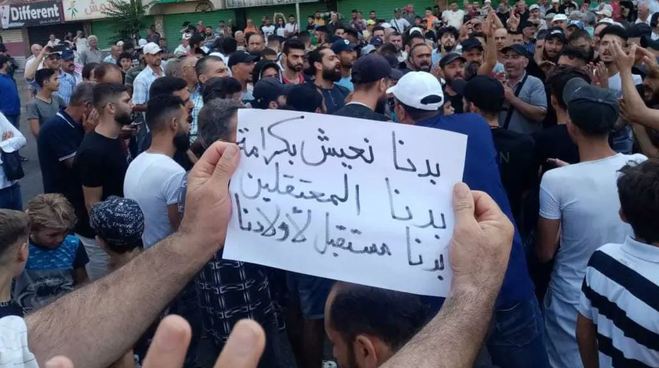 Different
بدنا نعيش بكرامة
بدنا المعتقلين
بدنا مستقبل لأولادنا